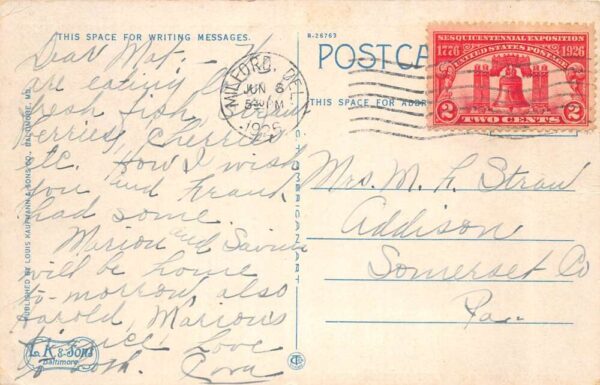 THIS SPACE FOR WRITING MESSAGES.
Dear Mat - 
are eating
fresh fish, straw
berries, cherries
etc. How I wish
you and Frank
had some.
Marion and
will be home
to-morrow, also
Harold, Marion's
fiance, Love
to both. Cora
PUBLISHED BY LOUIS KAUFMANN & SONS CO., BALTIMORE, MD.
L. K & Sons
Baltimore
B-26763
POST CA
THIS SPACE FOR ADDR
MILFORD, DEL.
JUN 8
5 PM
1926
SESQUICENTENNIAL EXPOSITION
1776 UNITED STATES POSTAGE 1926
2 TWO CENTS 2
C.T. AMERICAN ART
Mrs. M. L. Straw
Addison
Somerset Co
Pa.